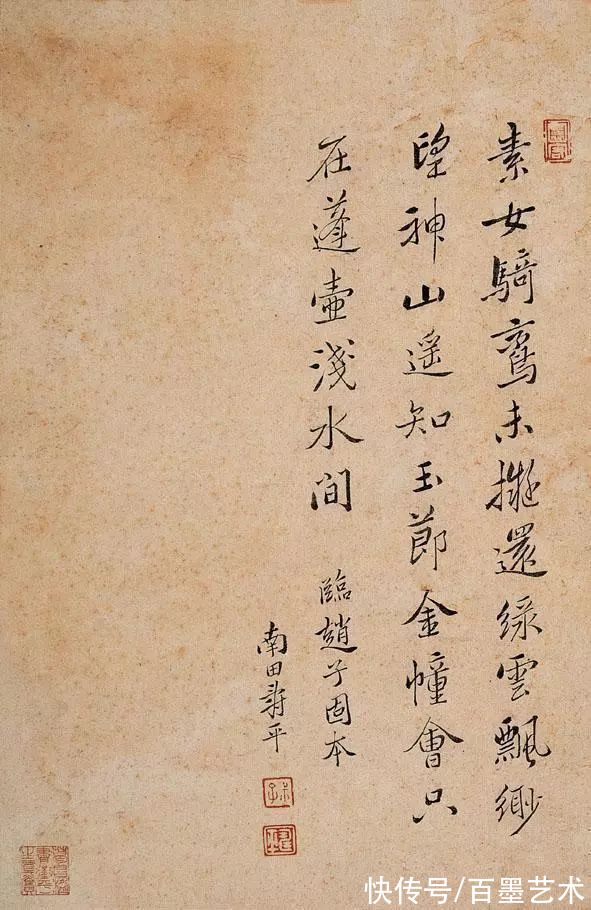 素女騎鸞未擬還綠雲飄緲
望神山遥知玉節金幢會只
在蓬壺淺水间
臨趙子固本
南田壽平
快传号/百墨艺术